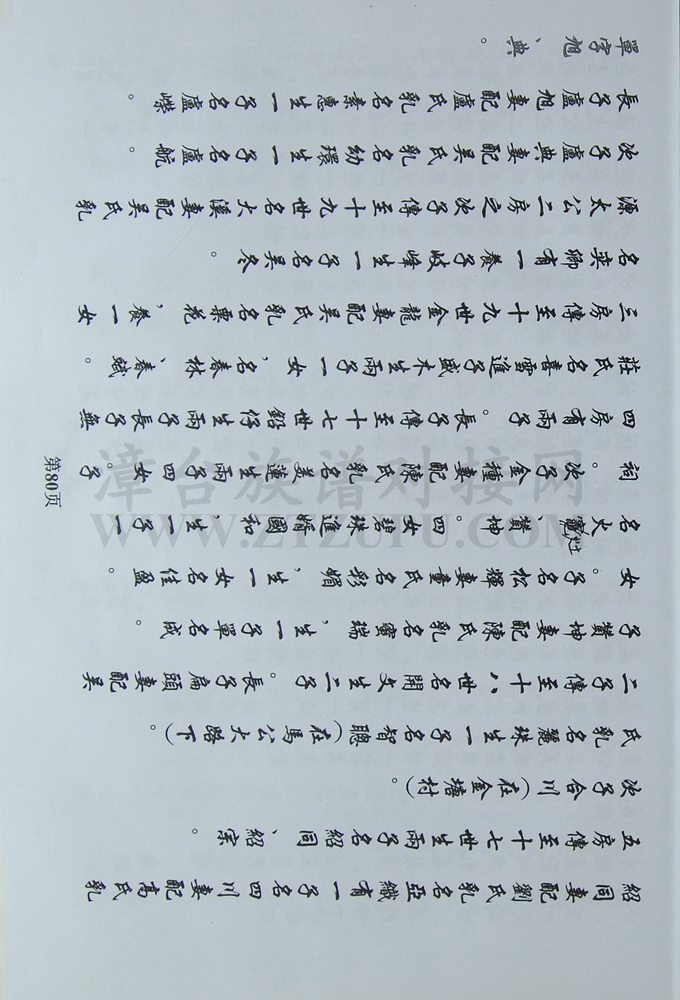 單字旭、典。
長子盧旭妻配盧氏乳名素惠生一子名盧嶸。
次子盧典妻配吳氏乳名幼環生一子名盧航。
源太公二房之次子傳至十九世名大溪妻配吳氏乳
名英卿有一養子岐峰生一子名吳冬。
三房傳至十九世金龍妻配吳氏乳名粟花，養一女
莊氏名喜雪進子盛木生兩子一女，名春林、春蛾。
四房有兩子。長子傳至十七世鋁仔生兩子長子無
祠。次子金種妻配陳氏乳名美蓮生兩子四女。子
名火、贊坤。四女碧珠進婿國和，生一子一
女。子名松輝妻童氏名彩媚，生一女名佳盈。
子贊坤妻配陳氏乳名蜜瑞，生一子單名成。
二子傳至十八世名開文生二子。長子扁頭妻配吳
氏乳名麗珠生一子名智聰(在馬公大路下)。
次子合川(在金塘村)。
五房傳至十七世生兩子名紹同、紹宗。
紹同妻配劉氏乳名亞織有一子名四川妻配高氏乳
第80页
漳台族谱对接网
WWW.ZTZUPU.COM